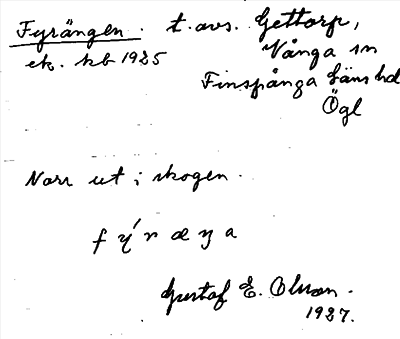 Fyrängen. t. avs. Gettorp,
ek. kb 1925 Vånga sn
Finspånga läns hd
Ögl
Norr ut i skogen.
fýræŋa
Gustaf E. Olsson.
1927.